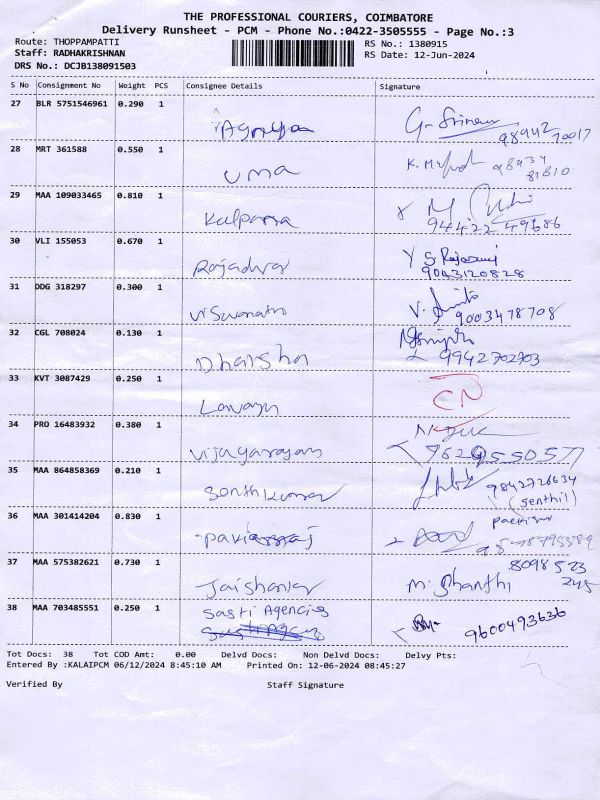 THE PROFESSIONAL COURIERS, COIMBATORE
Delivery Runsheet - PCM - Phone No.:0422-3505555 - Page No.:3
Route: THOPPAMPATTI RS No.: 1380915
Staff: RADHAKRISHNAN RS Date: 12-Jun-2024
DRS No.: DCJB138091503
S No Consignment No Weight PCS Consignee Details Signature
27 BLR 5751546961 0.290 1
28 MRT 361588 0.550 1 uma
29 MAA 109033465 0.810 1 Kalpana
94422 49686
30 VLI 155053 0.670 1
9043120828
31 DDG 318297 0.300 1 Viswanath
9003478708
32 CGL 708024 0.130 1 Dharsha
9942702703
33 KVT 3087429 0.250 1 Lavanya CN
34 PRO 16483932 0.380 1 Vijayarayan
35 MAA 864858369 0.210 1 Senthilkumar 9842726634
(Senthil)
36 MAA 301414204 0.830 1
37 MAA 575382621 0.730 1 Jaishankar M. Shanthi 8098523
245
38 MAA 703485551 0.250 1 Sasti Agencies
9600493636
Tot Docs: 38 Tot COD Amt: 0.00 Delvd Docs: Non Delvd Docs: Delvy Pts:
Entered By :KALAIPCM 06/12/2024 8:45:10 AM Printed On: 12-06-2024 08:45:27
Verified By Staff Signature